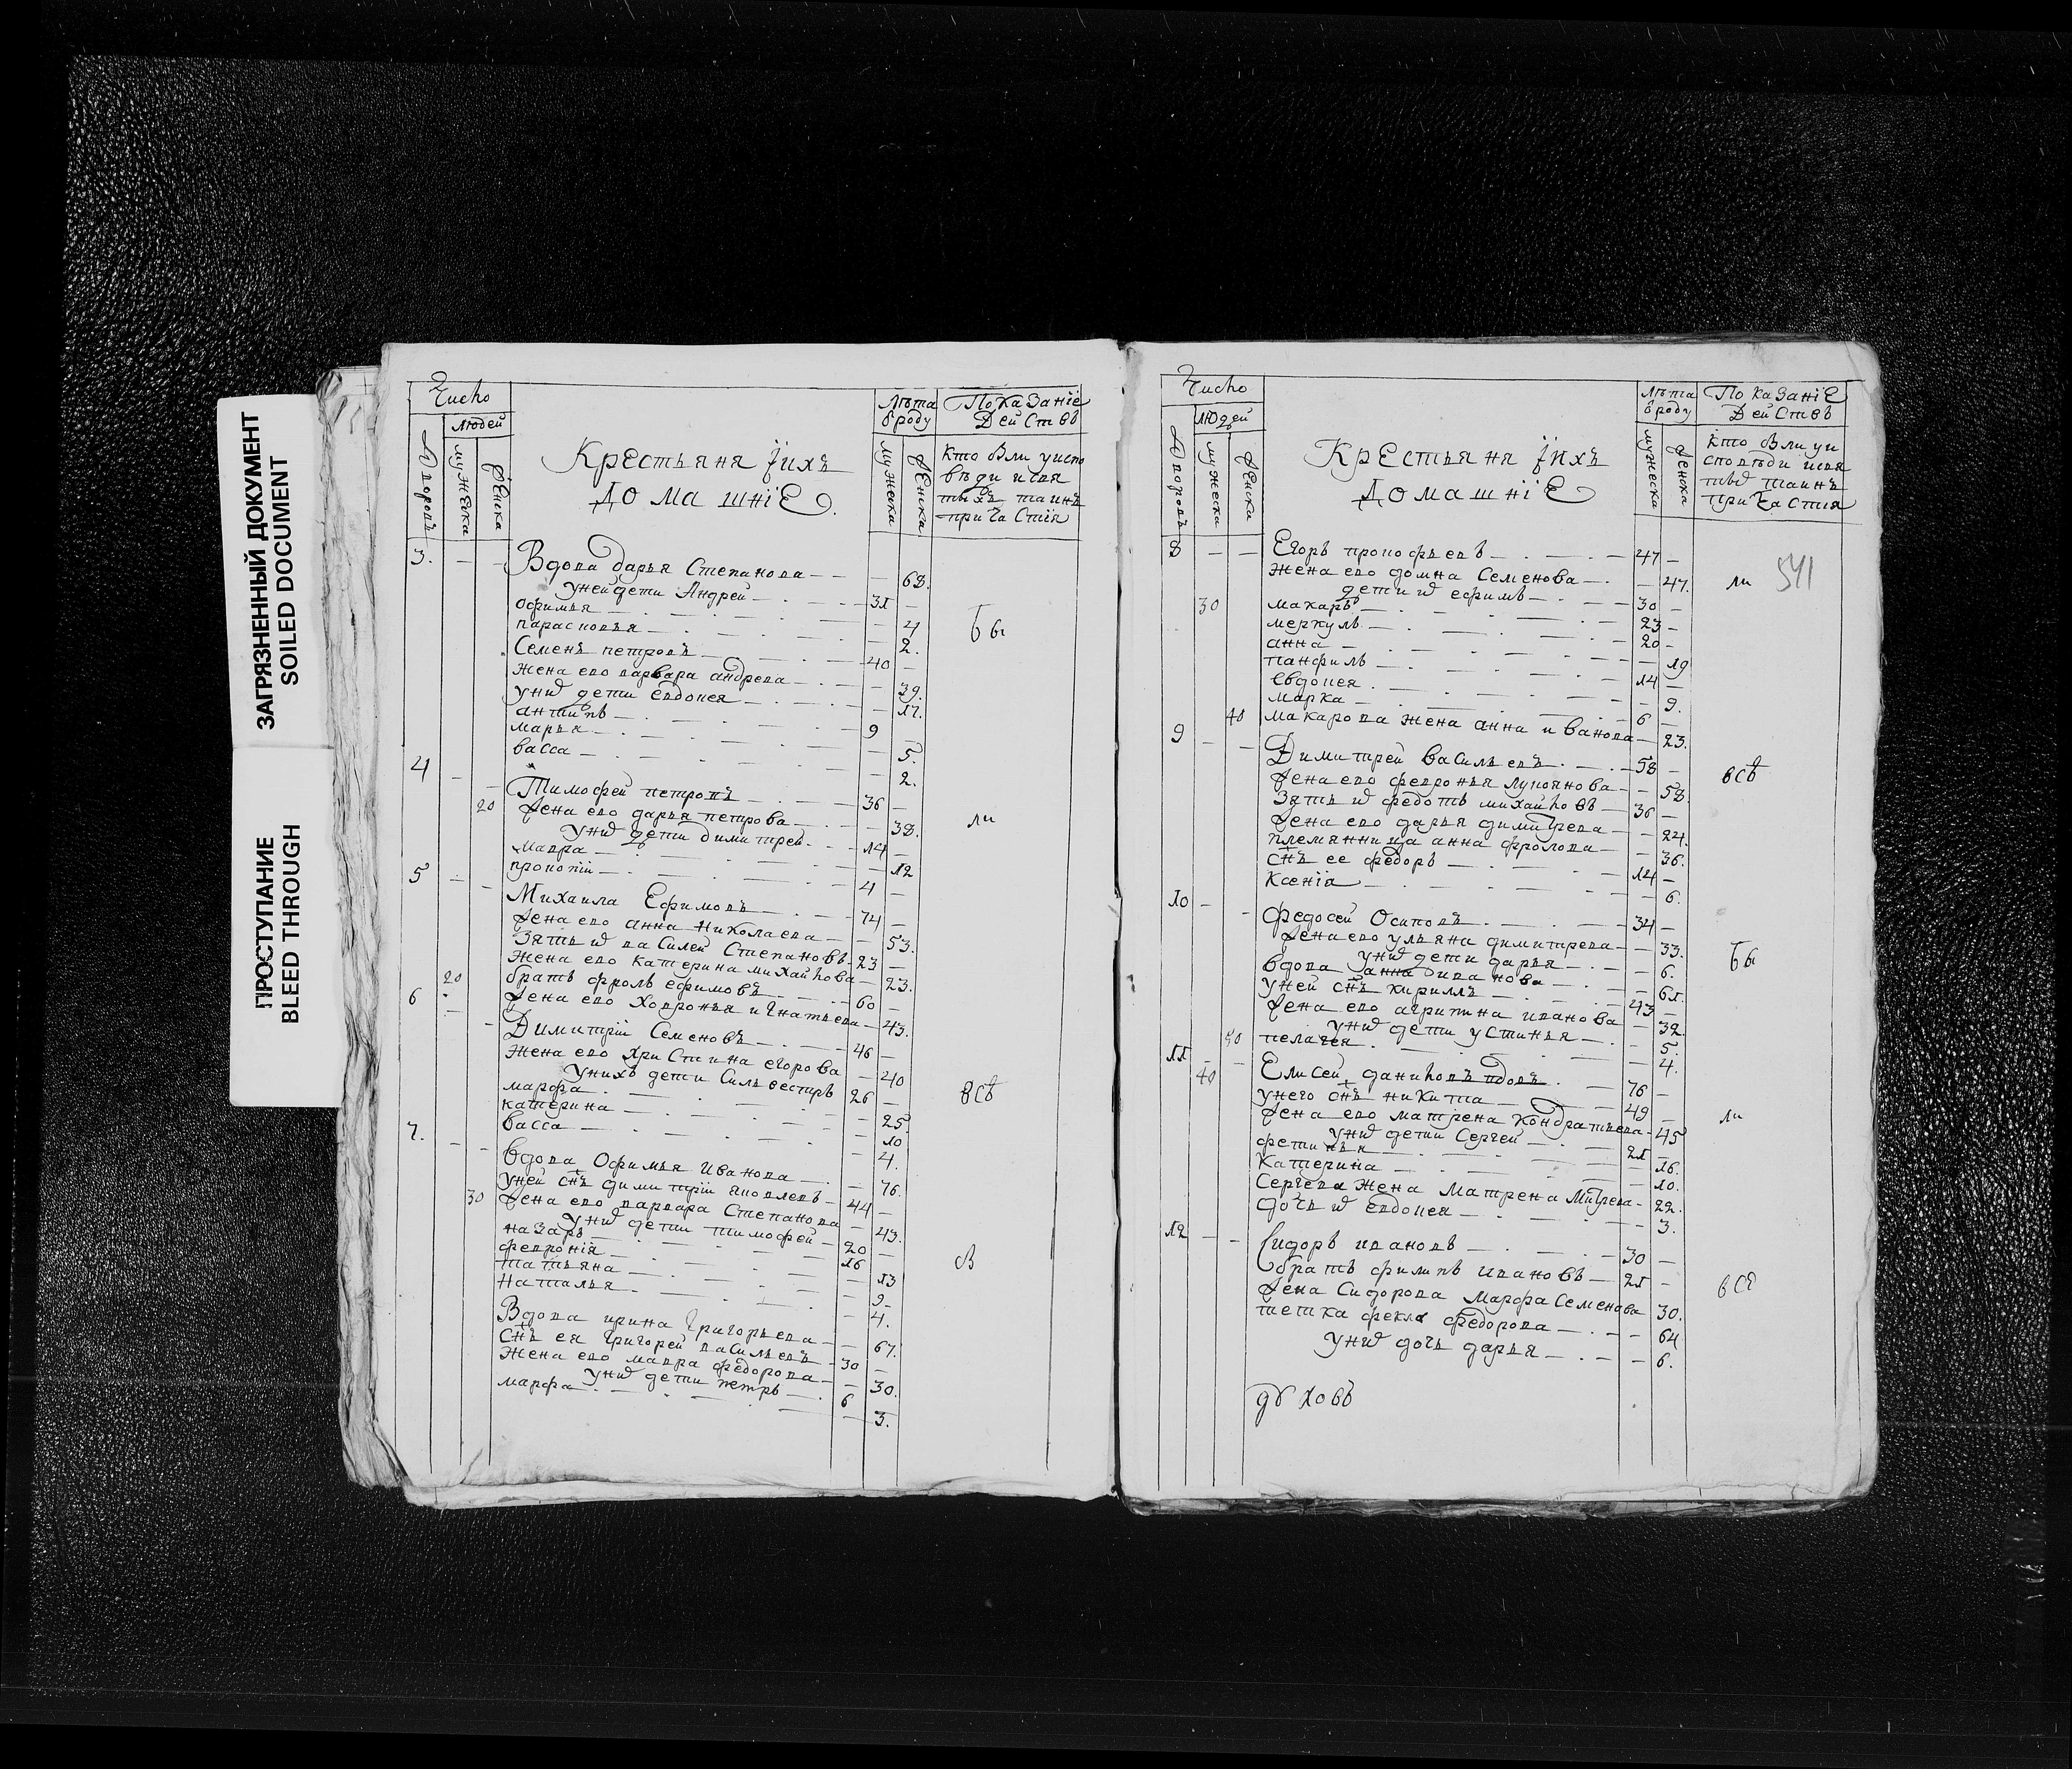 ЗАГРЯЗНЕННЫЙ ДОКУМЕНТ
SOILED DOCUMENT
ПРОСТУПАНИЕ
BLEED THROUGH
Число
людей
Дворовъ
мужеска
женска
Крестьяня iихъ
домашнiе
Лѣта
ѿроду
мужеска
женска
Показанiе
Действъ
кто былъ уиспо
вѣди исвя
тыхъ таинъ
причастiя
3. — — Вдова дарья Степанова — — — 68.
унейдети Андрей — 31 —
офимья — — 4
парасковья — — 2.
бы
Семенъ петровъ — 40 —
жена ево варвара андрева — — 39.
униⷯ дети евдокея — — 17.
антипъ — 9 —
марья — — 5.
васса — — 2.
4 — — Тимофей петровъ — 36 —
20 жена ево дарья петрова — — 38.
ли
униⷯ дети димитрей — 14 —
мавра — — 12
прокопiй — 4 —
5 — — Михаила Ефимовъ — 74 —
жена ево анна николаева — — 53.
Зять иⷯ василей Степановъ — 23 —
жена ево катерина михайлова — — 23.
20 братъ фролъ ефимовъ — 60 —
жена ево ховронья игнатьева — — 43.
6 — — Димитрiй Семеновъ — 46 —
жена ево христина егорова — — 40
унихъ дети Сильвестръ 26 —
всѣ
марфа — — 25
катерина — — 10
васса — — 4.
7. — — Вдова Офимья Иванова — — 76.
уней снъ димитрiй яковлевъ — 44 —
30 жена ево варвара Степанова — — 43.
униⷯ дети тимофей — 20 —
назаръ — 16 —
феврониiя — — 13
св
татьяна — — 9
наталья — — 4.
Вдова ирина григорьева — — 67.
снъ ея григорей васильевъ — 30 —
жена ево мавра федорова — — 30.
униⷯ дети петръ — 6
марфа — — 3.
Число
людей
Дворовъ
мужеска
женска
Крестьяня iихъ
домашнiе
Лѣта
ѿроду
мужеска
женска
Показанiе
Действъ
кто былъ уи
сповѣди исвя
тыⷯ таинъ
причастия
8 — — Егоръ прокофьевъ — 47 —
жена ево домна Семенова — — 47.
ли 541
дети иⷯ ефимъ — 30 —
30 макаръ — 23 —
меркулъ — 20 —
анна — — 19
панфилъ — 14 —
евдокея — — 9.
марка — 6 —
40 макарова жена анна иванова — 23.
9 — — Димитрей васильевъ — 58 —
всѣ
жена ево февронья лукоянова — — 58.
Зять иⷯ федотъ михайловъ — 36 —
жена ево дарья димитрева — — 24.
племянница анна фролова — — 36.
снъ ее федоръ — 14 —
Ксенiа — — 6.
10 — — федосей Осиповъ — 34 —
жена ево ульяна димитрева — — 33.
бы
униⷯ дети дарья — — 6.
вдова анна иванова — — 61.
уней снъ кирилъ — 43 —
жена ево агрипина иванова — 32.
униⷯ дети устинья — — 5.
50 пелагея — — 4.
11 — — Елисей даниловъ вдовъ — 76 —
40 унего снъ никита — 49 —
жена ево матрена кондратьева — 45
ли
униⷯ дети Сергей — 21 —
фетинья — — 16.
катерина — — 10.
Сергева жена матрена митрева — 22.
дочь иⷯ евдокея — — 3.
12 — — Сидоръ ивановъ — 30 —
братъ филипъ ивановъ — 21 —
всѣ
жена Сидорова марфа Семенова 30.
тетка фекла федорова — — 64
униⷯ дочь дарья — — 6.